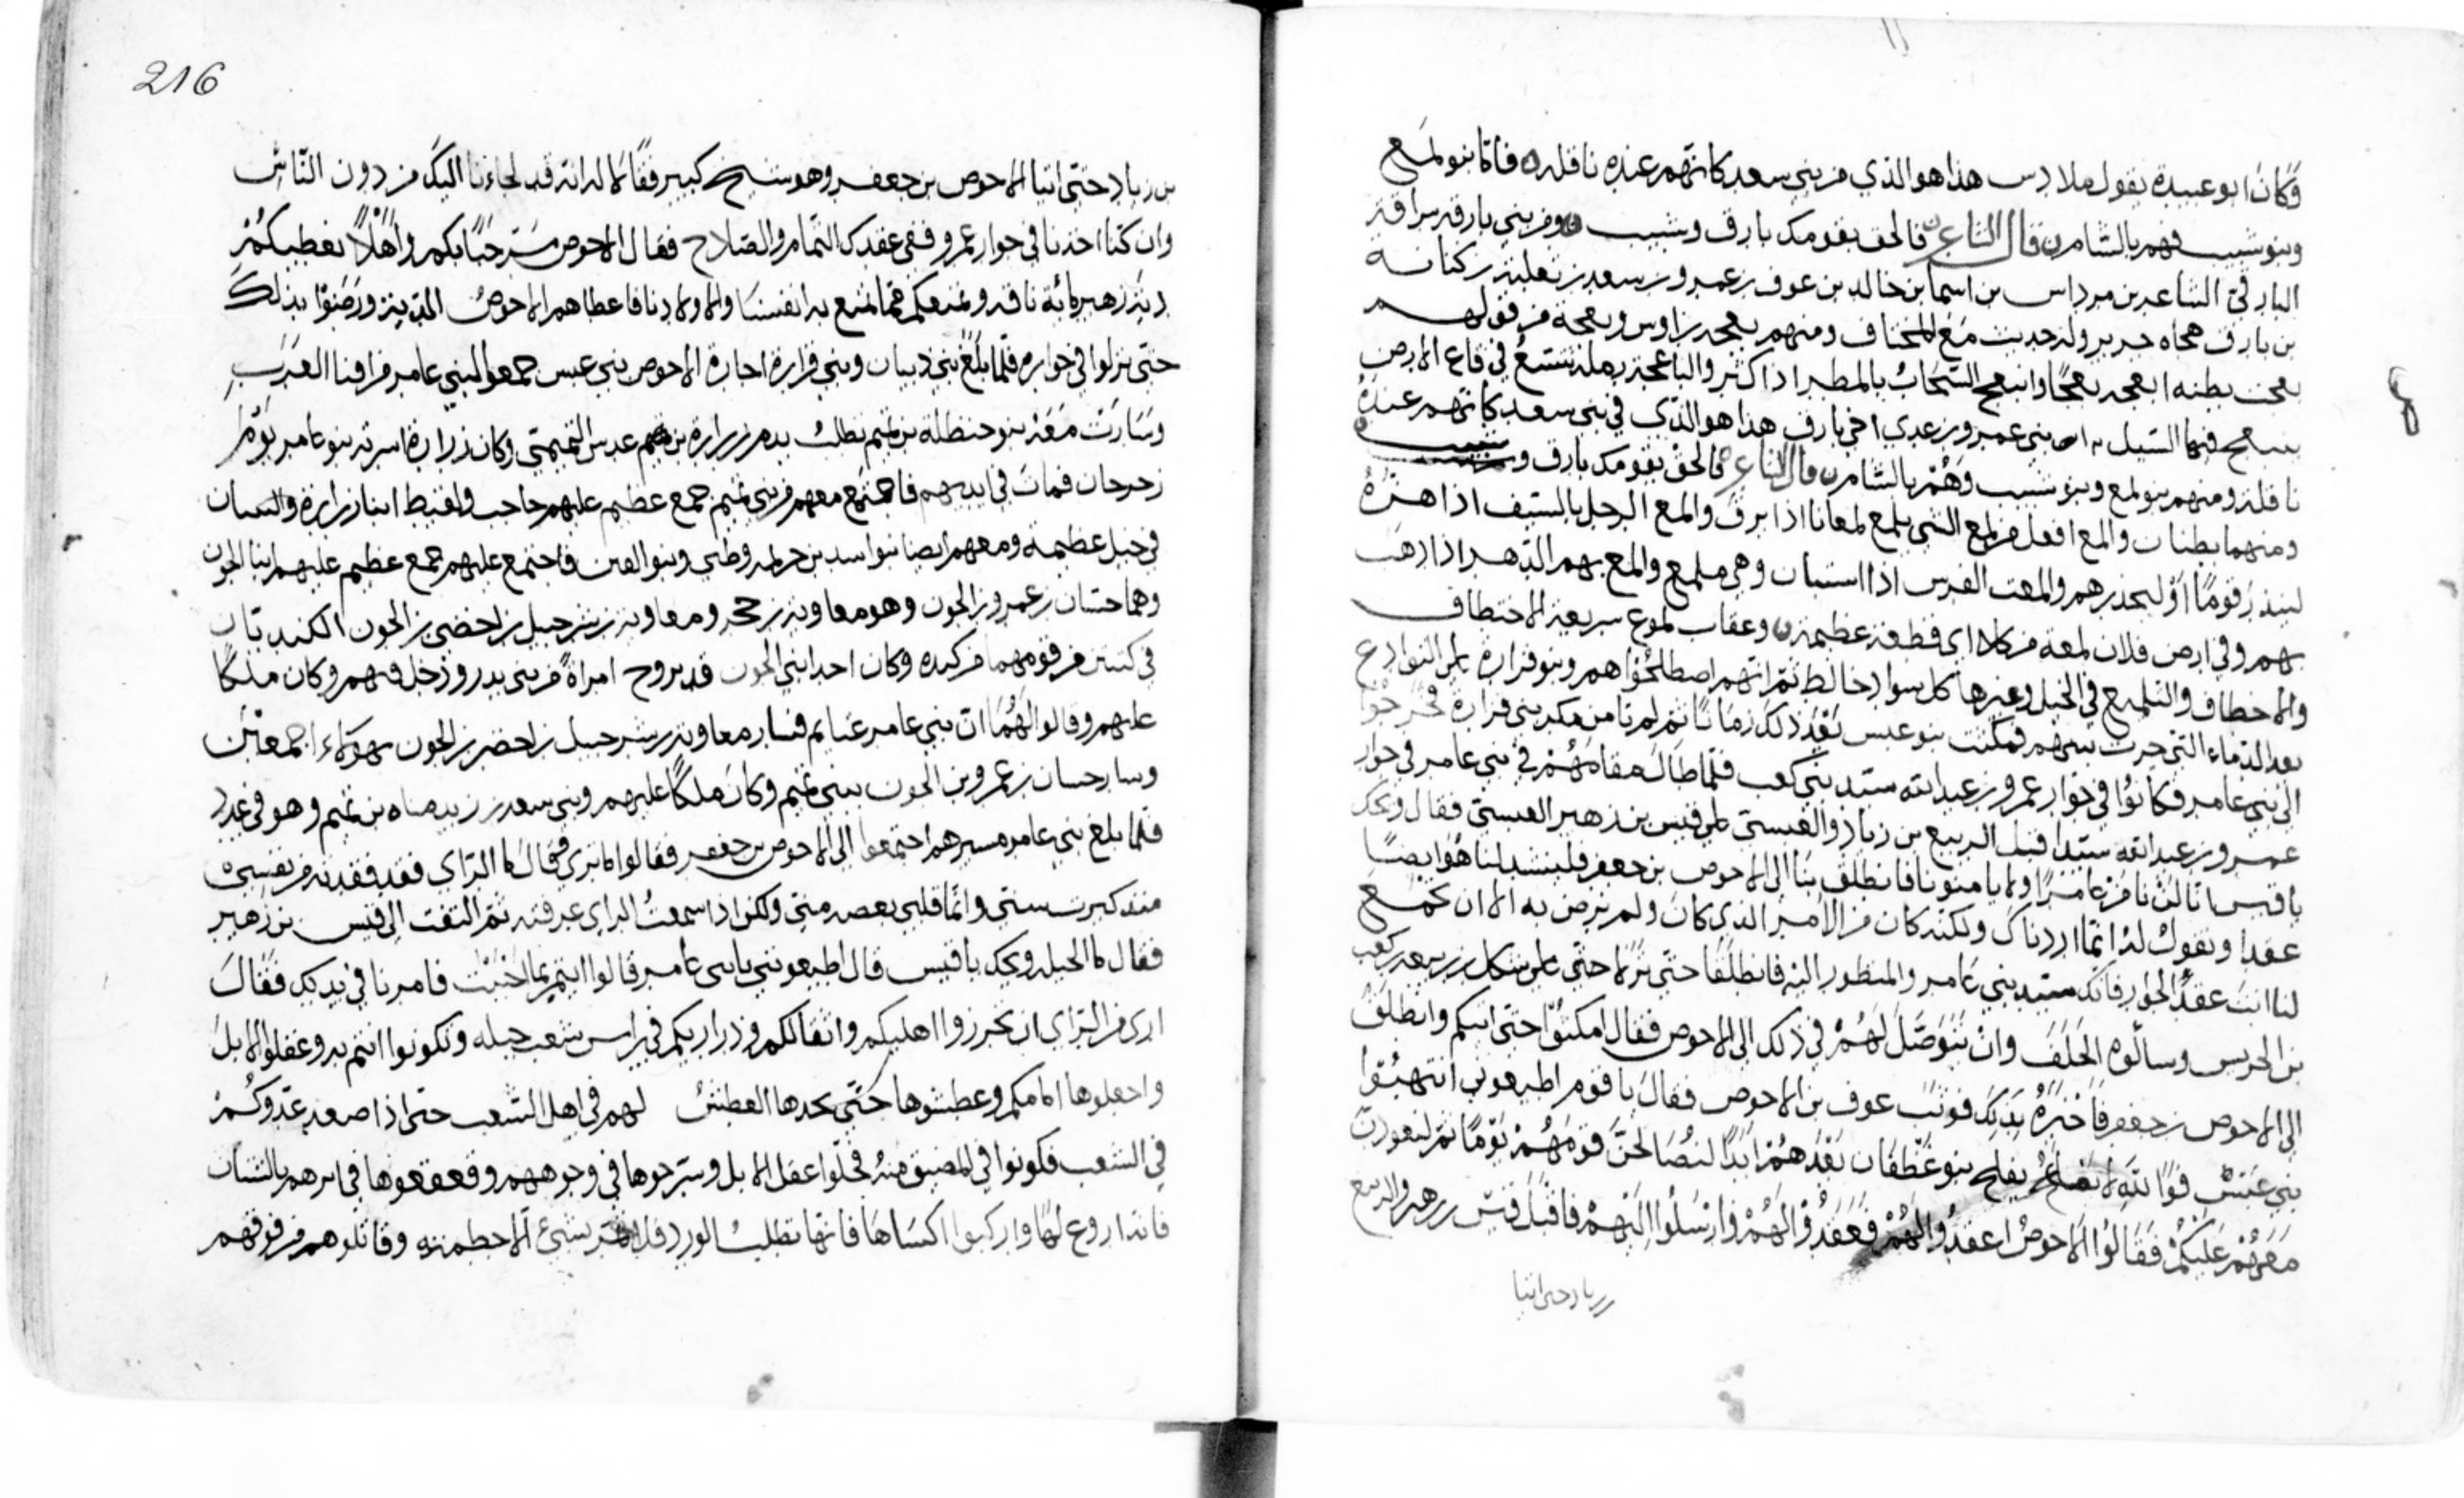 وكان ابو عبيدة يقول هذا هو الذي من بني سعد كانهم عنده ناقله فاما بنو لمع
وبنو شبيب فهم بالشام قال الشاعر فالحق بقومك بارق وشبيب ومن بني بارق سراقة
البارقي الشاعر بن مرداس بن اسما بن خالد بن عوف بن عمرو بن سعد بن ثعلبة بن كنانه
بن بارق هجاه جرير وله حديث مع المختار ومنهم بعجه بن اوس وبعجة من قولهم
بعجت بطنه ابعجه بعجًا وانبعج السحاب بالمطر اذا كثر والباعجة رملة تتسع في قاع الارض
فيها السيل بني عمرو بن عدي اخي بارق هذا هو الذي في بني سعد كانهم عنده
ناقلة ومنهم بنو لمع وبنو شبيب وهم بالشام قال الشاعر فالحق بقومك بارق وشبيب
ومنهما بطنان والمع افعل من لمع الشي يلمع لمعانا اذا برق والمع الرجل بالسيف اذا هزه
لينذر قومًا او ليحذرهم والمعت الفرس اذا استبان وهي ملمع والمع بهم الدهر اذا ذهب
بهم وفي ارض فلان لمعه من كلاء اي قطعة عظيمة وعقاب لموع سريعة الاختطاف
والاخطاف والتلميع في الخيل وغيرها كل سواد خالط ثم انهم اصطلحوا هم وبنو فزارة على التوادع
بعد الدماء التي جرت بينهم فمكثت بنو عبس بعد ذلك زمانًا ثم لم تامن مكر بني فزارة فخرجوا
الى بني عامر فكانوا في جوار عمرو بن عبد الله سيد بني كعب فلما طال مقامهم في بني عامر في جوار
عمرو بن عبد الله سيدا قبل الربيع بن زياد والعبسي على قيس بن زهير العبسي فقال ويحك
يا قيس عامرًا ولا يامنونا فانطلق بنا الى الاحوص بن جعفر فلينشد لنا هو ايضًا
عقدا ونقول له انما اردناك ولكنه كان من الامر الذي كان ولم نرض به الا ان تجمع
لنا انت عقد الجوار فانك سيد بني عامر والمنظور اليه فانطلقا حتى نزلا حتى على بن ربيعه بن كعب
بن الحريس وسالوه الحلف وان يتوصل لهم في ذلك الى الاحوص فقال امكثوا حتى اتيكم وانطلق
الى الاحوص بن جعفر فاخبره بذلك فوثب عوف بن الاحوص فقال يا قوم اطيعوني انتهبوا
بني عبس فوالله لا يفلح بنو غطفان بعدهم ابدًا لتصالحن قومهم يومًا ثم ليعودن
معهم عليكم فقالوا الاحوص اعقدوا لهم فعقدوا لهم وارسلوا اليهم فاقبل قيس بن زهير والربيع
بن زياد حتى اتيا
216
بن زياد حتى اتيا الاحوص بن جعفر وهو شيخ كبير فقالا له انه قد لجاءنا اليك من دون الناس
وان كنا اخذنا في جوار عمرو ففي عقدك التمام والصلاح فقال الاحوص مرحبًا بكم واهلًا نعطيكم
دية زهير مائة ناقه ونمنعكم مما نمنع به انفسنا والاولادنا فاعطاهم الاحوص الدية ورضوا بذلك
حتى نزلوا في جواره فلما بلغ بني ذبيان وبني فزارة اجارة الاحوص بني عبس جمعوا لبني عامر من افنا العرب
وسارت معه بنو حنظلة بن تميم بطلب بدم زرارة بن عدس التميمي وكان زرارة اسرته بنو عامر يوم
رحرحان فمات في ايديهم فاجتمع معهم من بني تميم جمع عظيم عليهم حاجب ولقيط ابنا زرارة
في خيل عظيمه ومعهم ايضا بنو اسد بن خزيمه وطي وبنو القين فاجتمع عليهم جمع عظيم عليهم ابنا الجون
وهما حسان بن عمرو بن الجون وهو معاوية بن حجر ومعاوية بن شرحبيل بن اخضر بن الجون الكنديان
في من قومهما من كنده وكان احد ابني الجون قد تزوج امراةً من بني بدر ودخل فيهم وكان ملكًا
عليهم وقالوا لهما ان بني عامر غنايم فسار معاوية بن شرحبيل بن اخضر بن الجون بهولاء اجمعين
وسار حسان بن عمرو بن الجون ببني تميم وكان ملكًا عليهم وبني سعد بن زيد مناه بن تميم وهو في عدد
فلما بلغ بني عامر مسيرهم اجتمعوا الى الاحوص بن جعفر فقالوا ما ترى فقال ما الراي فقد فقدته من نفسي
منذ كبرت سني وانما قلبي بضعه مني ولكن اذا سمعت الراي عرفته ثم التفت الى قيس بن زهير
فقال ما الحيله ويحك يا قيس قال اطيعوني يا بني عامر قالوا ائتمر بما احببت فامرنا في يدك فقال
ارى من الراي ان تحرزوا اهليكم واثقالكم وذراريكم في راس شعب جبله وتكونوا انتم به وعقلوا الابل
واجعلوها امامكم وعطشوها حتى يجدها العطش لهم في اهل الشعب حتى اذا صعد عدوكم
في الشعب فكونوا في المضيق منه فحلوا عقل الابل وسرحوها في وجوههم وقعقعوها في اثرهم بالشنان
فانه اروع لها واركبوا اكساها فانها تطلب الورد فلا تمر بشيء الا حطمته وقاتلوهم من فوقهم